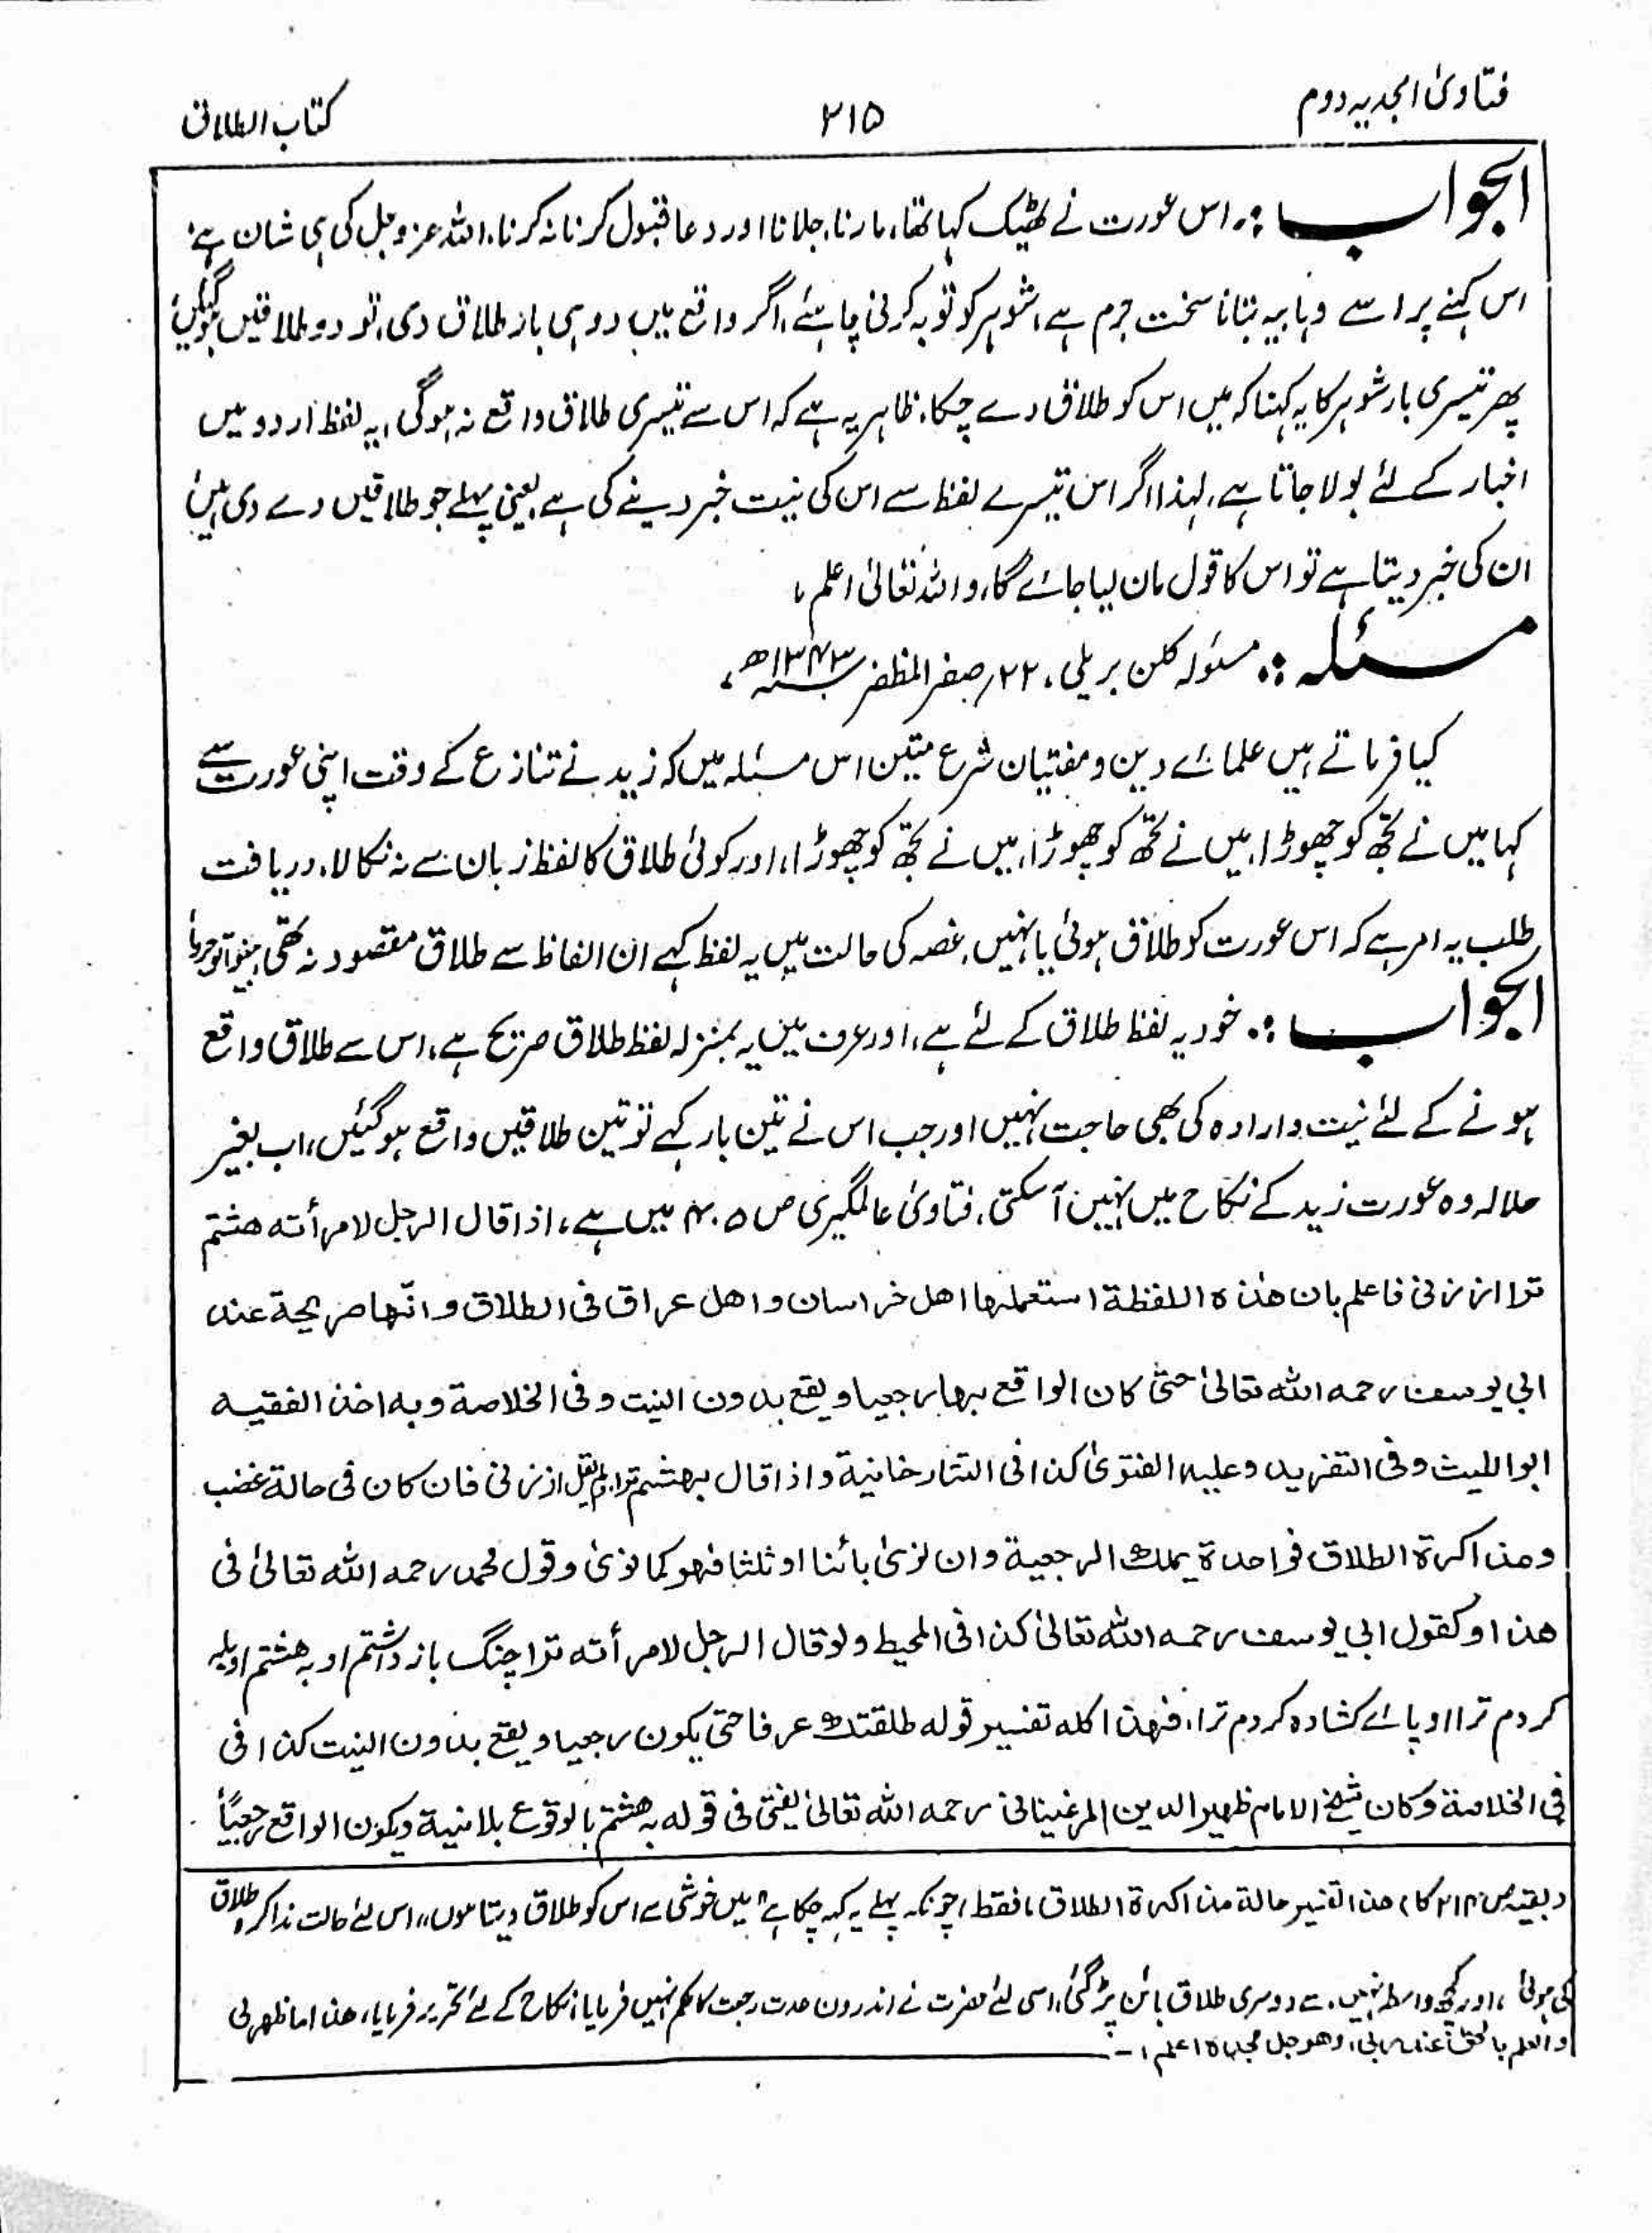 فتاویٰ امجدیہ دوم
۲۱۵
کتاب الطلاق
الجواب :۔ اس عورت نے ٹھیک کہا تھا، مارنا، جلانا اور دعا قبول کرنا نہ کرنا، اللہ عزوجل کی ہی شان ہے،
اس کہنے پر اسے وہابیہ بتانا سخت جرم ہے، شوہر کو توبہ کرنی چاہئے، اگر واقع میں دو ہی بار طلاق دی، تو دو طلاقیں ہوگئیں
پھر تیسری بار شوہر کا یہ کہنا کہ میں اس کو طلاق دے چکا، ظاہر یہ ہے کہ اس سے تیسری طلاق واقع نہ ہوگی، یہ لفظ اردو میں
اخبار کے لئے بولا جاتا ہے، لہذا اگر اس تیسرے لفظ سے اس کی نیت خبر دینے کی ہے یعنی پہلے جو طلاقیں دے دی ہیں
ان کی خبر دیتا ہے تو اس کا قول مان لیا جائے گا، واللہ تعالیٰ اعلم،
مسئلہ :۔ مسئولہ کلن بریلی، ۲۲؍ صفر المظفر ۱۳۴۳ھ،
کیا فرماتے ہیں علمائے دین ومفتیان شرع متین اس مسئلہ میں کہ زید نے تنازع کے وقت اپنی عورت سے
کہا میں نے تجھ کو چھوڑا، میں نے تجھ کو چھوڑا، میں نے تجھ کو چھوڑا، اور کوئی طلاق کا لفظ زبان سے نہ نکالا، دریافت
طلب یہ امر ہے کہ اس عورت کو طلاق ہوئی یا نہیں، غصہ کی حالت میں یہ لفظ کہے ان الفاظ سے طلاق مقصود نہ تھی، بینوا توجروا
الجواب :۔ خود یہ لفظ طلاق کے لئے ہے، اور عرف میں یہ بمنزلہ لفظ طلاق صریح ہے، اس سے طلاق واقع
ہونے کے لئے نیت وارادہ کی بھی حاجت نہیں اور جب اس نے تین بار کہے تو تین طلاقیں واقع ہوگئیں، اب بغیر
حلالہ وہ عورت زید کے نکاح میں نہیں آسکتی، فتاویٰ عالمگیری ص ۴۰۵ میں ہے، اذا قال الرجل لامرأته هشتم
ترا از زنی فاعلم بان هذه اللفظة استعملها اهل خراسان واهل عراق فی الطلاق وانها صریحة عند
ابی یوسف رحمه الله تعالیٰ حتی کان الواقع بها رجعیا ویقع بدون النیت وفی الخلاصة وبه اخذ الفقیه
ابو اللیث وفی التفرید وعلیه الفتویٰ کذا فی التتارخانیة واذا قال بهشتم ترا ولم یقل از زنی فان کان فی حالة غضب
ومذاکرة الطلاق فواحدة یملک الرجعیة وان نویٰ بائنا او ثلثا فهو کما نویٰ وقول محمد رحمه الله تعالیٰ فی
هذا وکقول ابی یوسف رحمه الله تعالیٰ کذا فی المحیط ولو قال الرجل لامرأته ترا چنگ باز داشتم او بهشتم او یله
کردم ترا او پائے کشاده کردم ترا، فهذا کله تفسیر قوله طلقتک عرفا حتی یکون رجعیا ویقع بدون النیت کذا فی
فی الخلاصة وکان شیخ الامام ظهیر الدین المرغینانی رحمه الله تعالیٰ یفتی فی قوله بهشتم بالوقوع بلا نیة ویکون الواقع رجعیاً
(بقیہ ص ۲۱۴ کا) هذا التفسیر حالة مذاکرة الطلاق، فقط، چونکہ پہلے یہ کہہ چکا ہے "میں خوشی سے اس کو طلاق دیتا ہوں" اس لئے حالت مذاکرہ طلاق
کی ہوئی، اور کچھ واسطہ نہیں، سے دوسری طلاق بائن پڑ گئی، اسی لئے حضرت نے اندرون عدت رجعت کا حکم نہیں فرمایا، نکاح کے لئے تحریر فرمایا، هذا ما ظهر لی
والعلم بالحق عند ربی، وهو جل مجده اعلم،۔